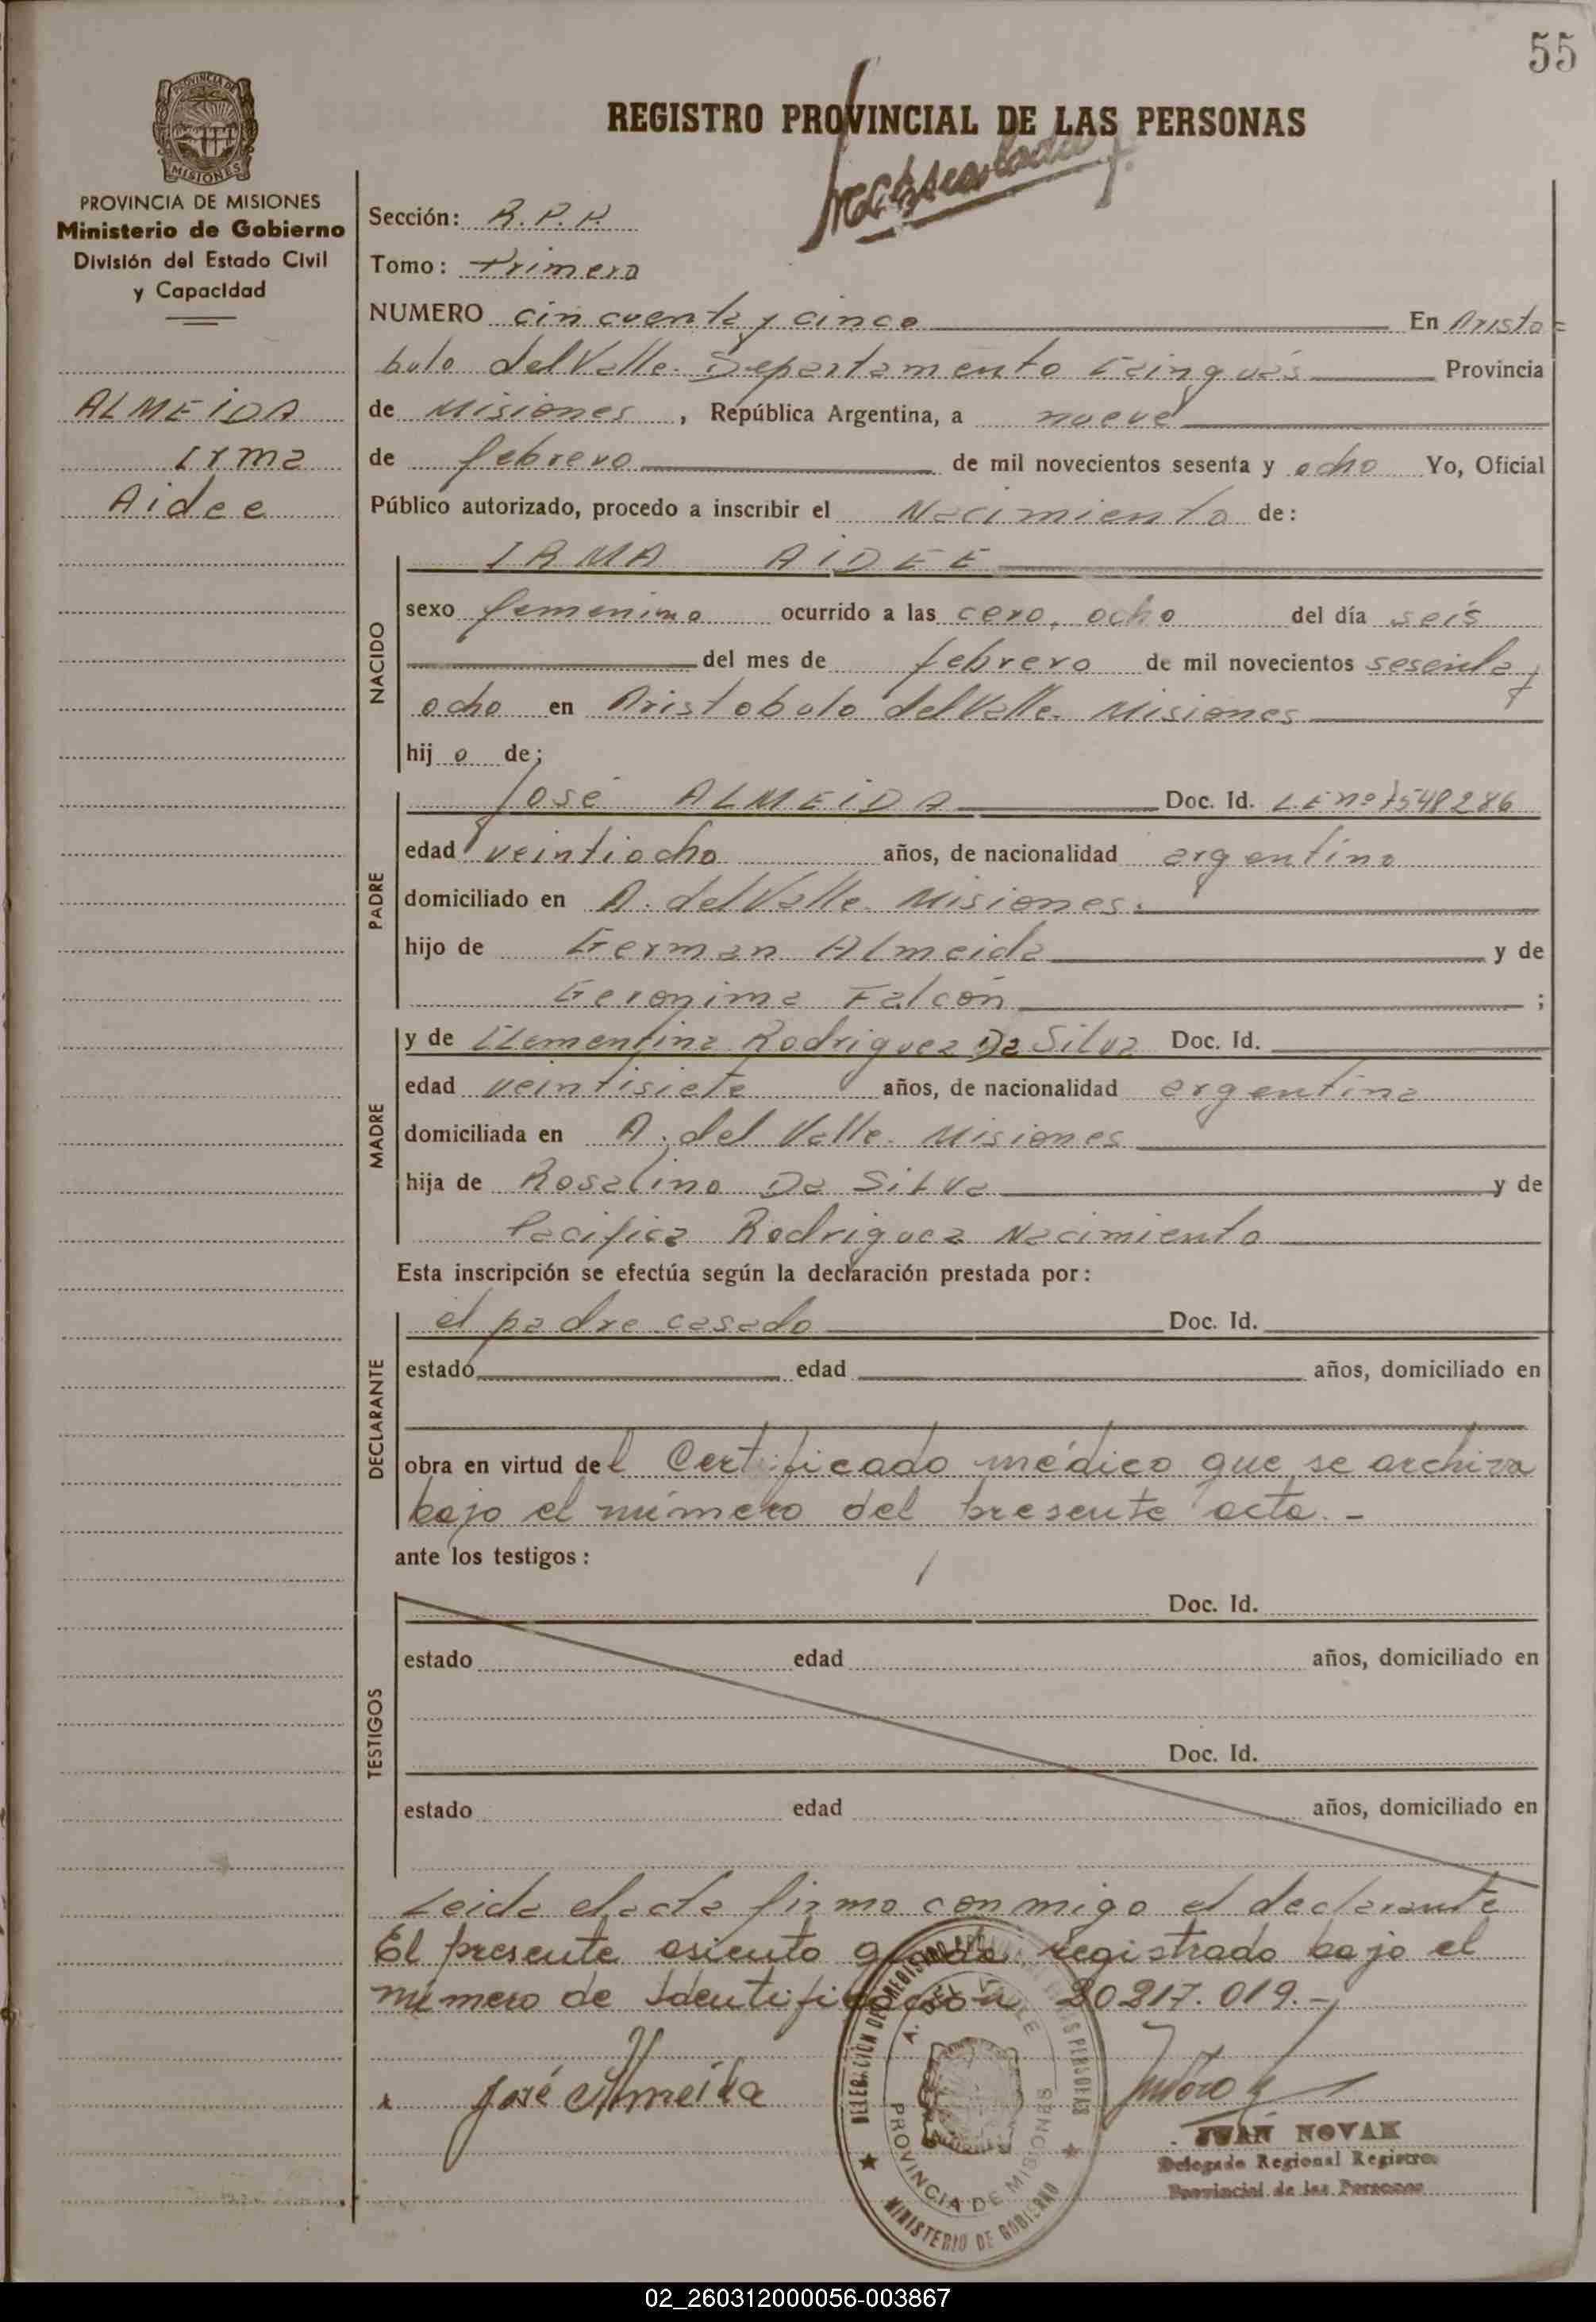 55
REGISTRO PROVINCIAL DE LAS PERSONAS
PROVINCIA DE MISIONES
MISIONES
PROVINCIA DE MISIONES
Ministerio de Gobierno
División del Estado Civil
y Capacidad
ALMEIDA
Irma
Aidee
Sección: R. P. P.
Tomo: Primero
NUMERO cincuenta y cinco En Aristo=
bulo del Valle. Departamento Cainguás Provincia
de Misiones, República Argentina, a nueve
de febrero de mil novecientos sesenta y ocho Yo, Oficial
Público autorizado, procedo a inscribir el Nacimiento de:
NACIDO
IRMA AIDEE
sexo femenino ocurrido a las cero, ocho del día seis
del mes de febrero de mil novecientos sesenta y
ocho en Aristobulo del Valle. Misiones
hijo de;
PADRE
José ALMEIDA Doc. Id. LE nº 7548286
edad veintiocho años, de nacionalidad argentino
domiciliado en A. del Valle. Misiones.
hijo de German Almeida y de
Geronima Falcón ;
MADRE
y de Clementina Rodriguez Da Silva Doc. Id.
edad veintisiete años, de nacionalidad argentina
domiciliada en A. del Valle. Misiones
hija de Rosalino Da Silva y de
Pacifica Rodriguez Nacimiento
Esta inscripción se efectúa según la declaración prestada por:
DECLARANTE
el padre casado Doc. Id.
estado edad años, domiciliado en
obra en virtud del Certificado médico que se archiva
bajo el número del presente acta. -
ante los testigos:
TESTIGOS
Doc. Id.
estado edad años, domiciliado en
Doc. Id.
estado edad años, domiciliado en
Leida el acta firma conmigo el declarante
El presente asiento queda registrado bajo el
número de Identificación 20217.019.-
José Almeida
A. DEL VALLE
PROVINCIA DE MISIONES
MINISTERIO DE GOBIERNO
JUAN NOVAK
Delegado Regional Registro
Provincial de las Personas
02_260312000056-003867